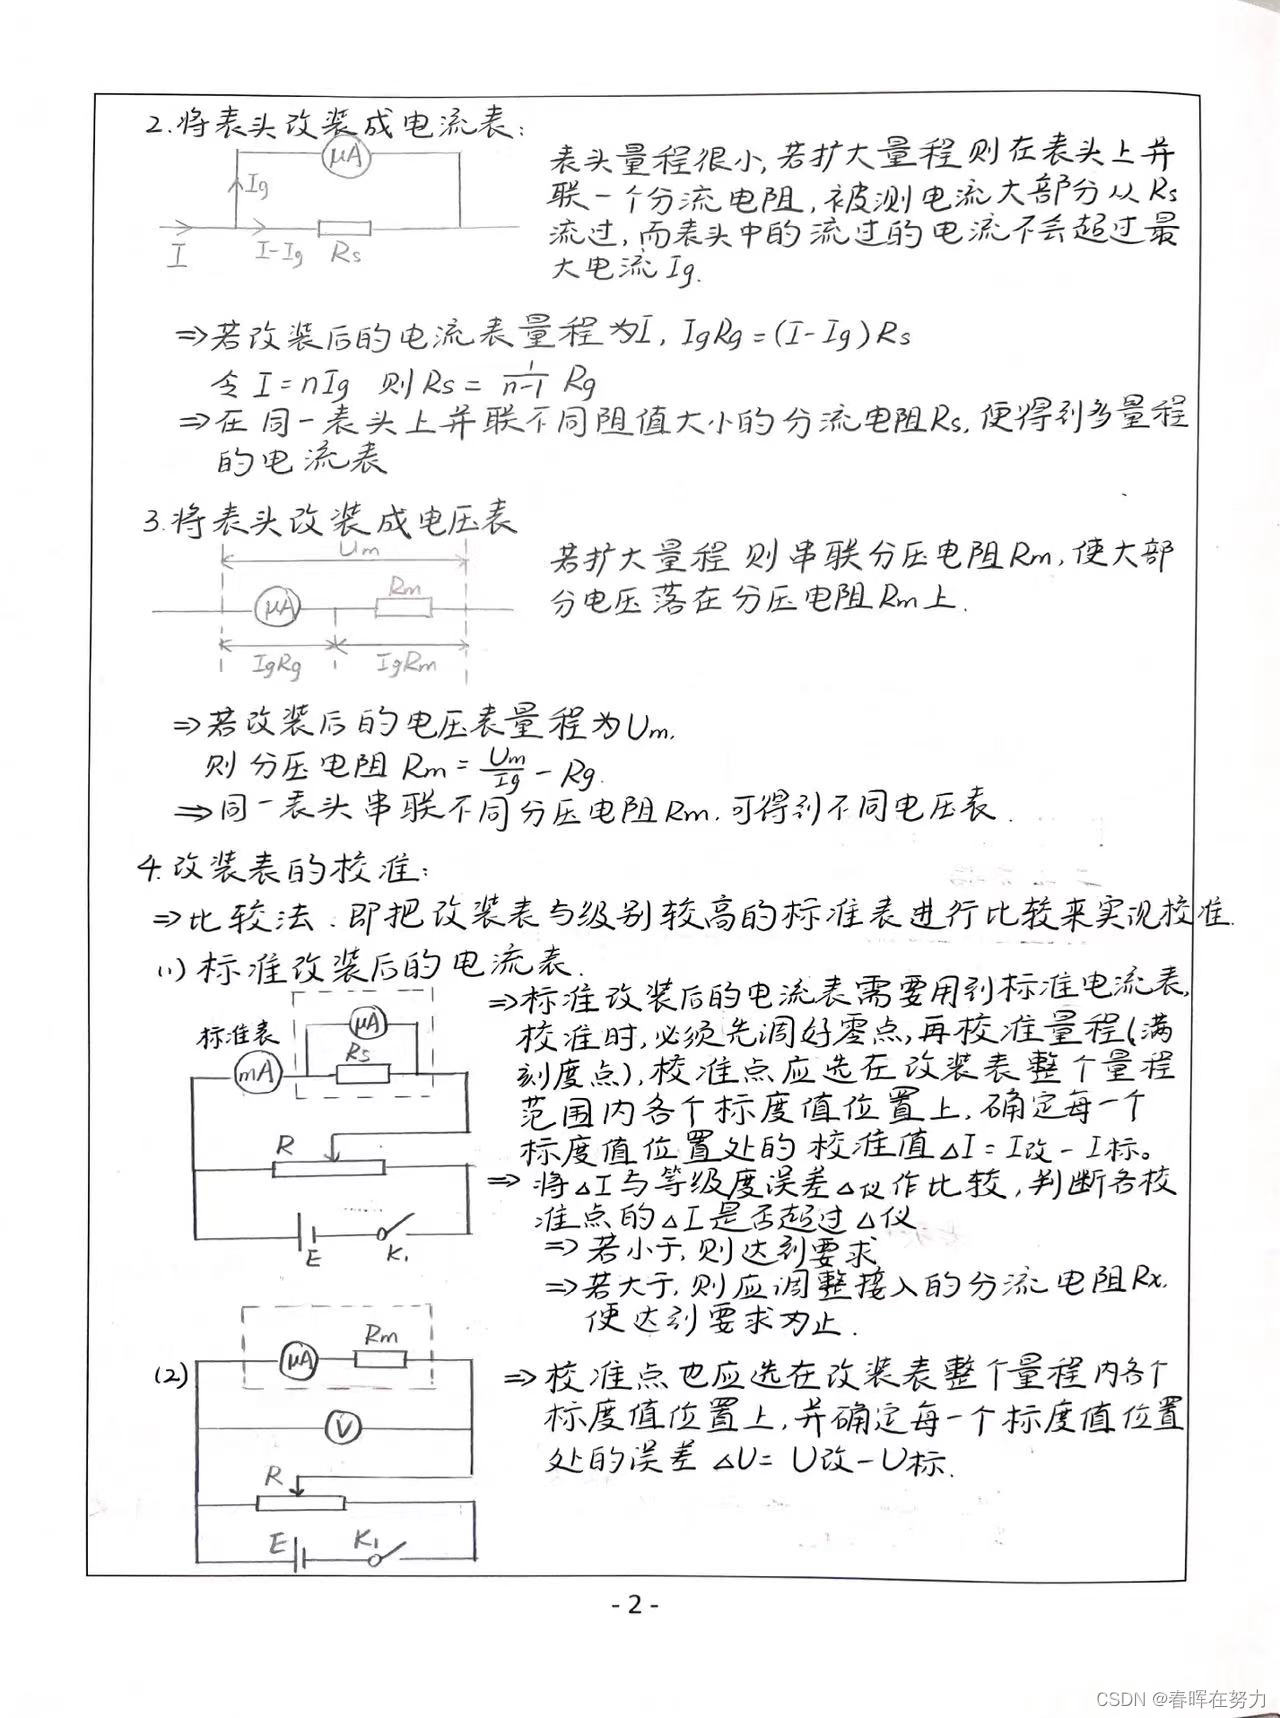 2.将表头改装成电流表:
μA
Ig
I
I-Ig
Rs
表头量程很小,若扩大量程则在表头上并
联一个分流电阻,被测电流大部分从Rs
流过,而表头中的流过的电流不会超过最
大电流Ig.
⇒若改装后的电流表量程为I, IgRg=(I-Ig)Rs
令 I=nIg 则Rs= 1/(n-1) Rg
⇒在同一表头上并联不同阻值大小的分流电阻Rs,便得到多量程
的电流表
3.将表头改装成电压表
Um
μA
Rm
IgRg
IgRm
若扩大量程则串联分压电阻Rm,使大部
分电压落在分压电阻Rm上.
⇒若改装后的电压表量程为Um,
则分压电阻 Rm= Um/Ig - Rg.
⇒同一表头串联不同分压电阻Rm.可得到不同电压表.
4.改装表的校准:
⇒比较法.即把改装表与级别较高的标准表进行比较来实现校准.
(1)标准改装后的电流表.
标准表
mA
μA
Rs
R
E
K1
⇒标准改装后的电流表需要用到标准电流表,
校准时,必须先调好零点,再校准量程(满
刻度点),校准点应选在改装表整个量程
范围内各个标度值位置上,确定每一个
标度值位置处的校准值△I=I改-I标。
⇒将△I与等级度误差△仪作比较,判断各校
准点的△I是否超过△仪
⇒若小于,则达到要求
⇒若大于,则应调整接入的分流电阻Rx.
便达到要求为止.
(2)
μA
Rm
V
R
E
K1
⇒校准点也应选在改装表整个量程内各个
标度值位置上,并确定每一个标度值位置
处的误差 △U=U改-U标.
- 2 -
CSDN @春晖在努力